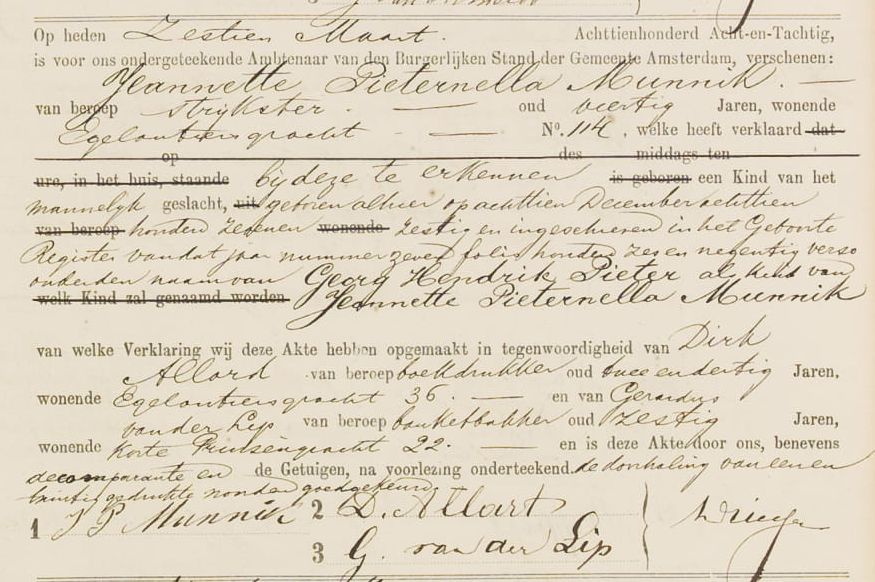 Op heden Zestien Maart. Achttienhonderd Acht-en-Tachtig,
is voor ons ondergeteekende Ambtenaar van den Burgerlijken Stand der Gemeente Amsterdam, verschenen:
Jeannette Pieternella Munnik. —
van beroep Strijkster. — oud veertig Jaren, wonende
Egelantiersgracht — No. 114, welke heeft verklaard dat
op des middags ten
ure, in het huis, staande bij deze te erkennen is geboren een Kind van het
mannelijk geslacht, uit geboren alhier op achttien December achttien
van beroep honderd zeven en wonende zestig en ingeschreven in het Geboorte
Register van dat jaar nummer zeven folio honderd zes en negentig verso
onder den naam van Georg Hendrik Pieter als kind van
welk Kind zal genaamd worden Jeannette Pieternella Munnik
van welke Verklaring wij deze Akte hebben opgemaakt in tegenwoordigheid van Dirk
Allard van beroep boekdrukker oud twee en dertig Jaren,
wonende Egelantiersgracht 36. — en van Gerardus
van der Lip van beroep banketbakker oud zestig Jaren,
wonende Korte Prinsengracht 22. — en is deze Akte door ons, benevens
de comparante en de Getuigen, na voorlezing onderteekend. de doorhaling van een en
twintig gedrukte woorden goedgekeurd
1 J P Munnik 2 D. Allart
3 G. van der Lip